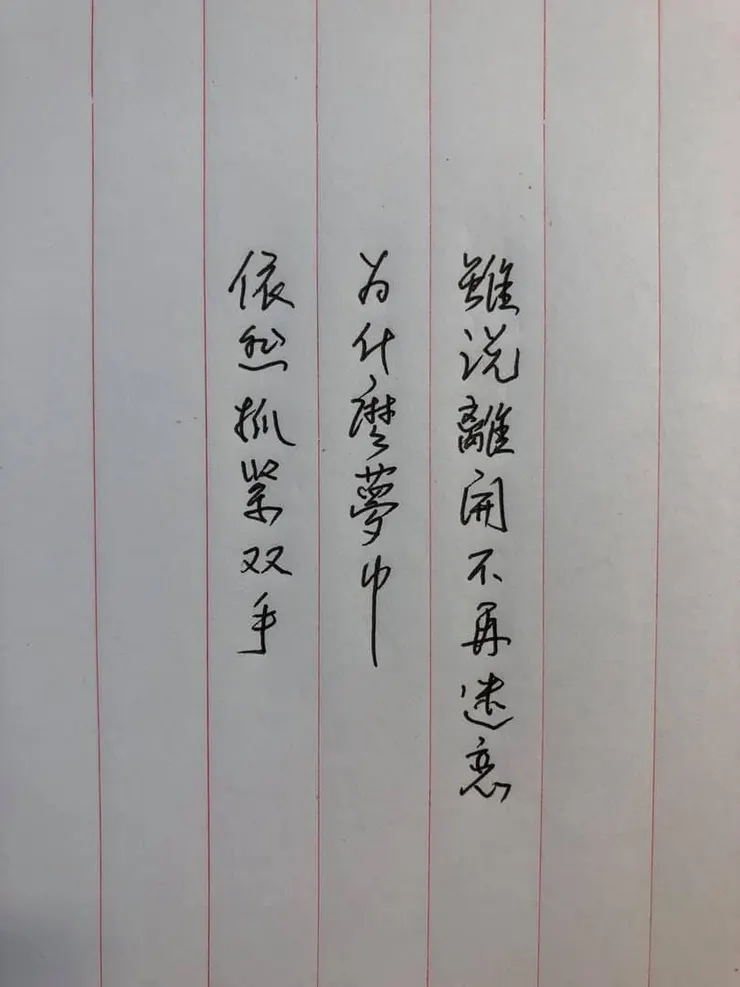 雖说離開不再迷恋
为什麼夢中
依然抓紧双手